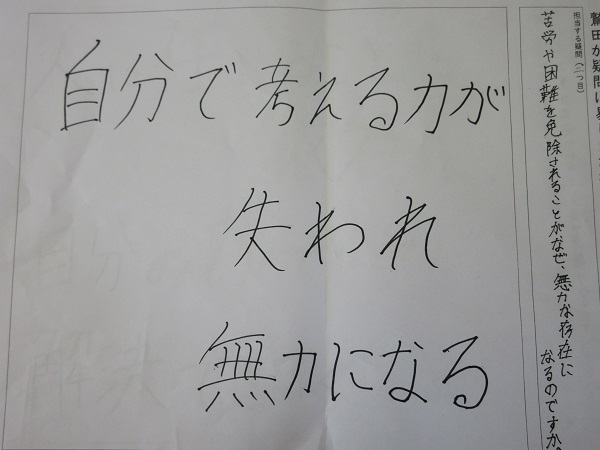 自分で考える力が
失われ
無力になる
担当する疑問(二つ目)
苦労や困難を免除されることがなぜ、無力な存在に
なるのですか。